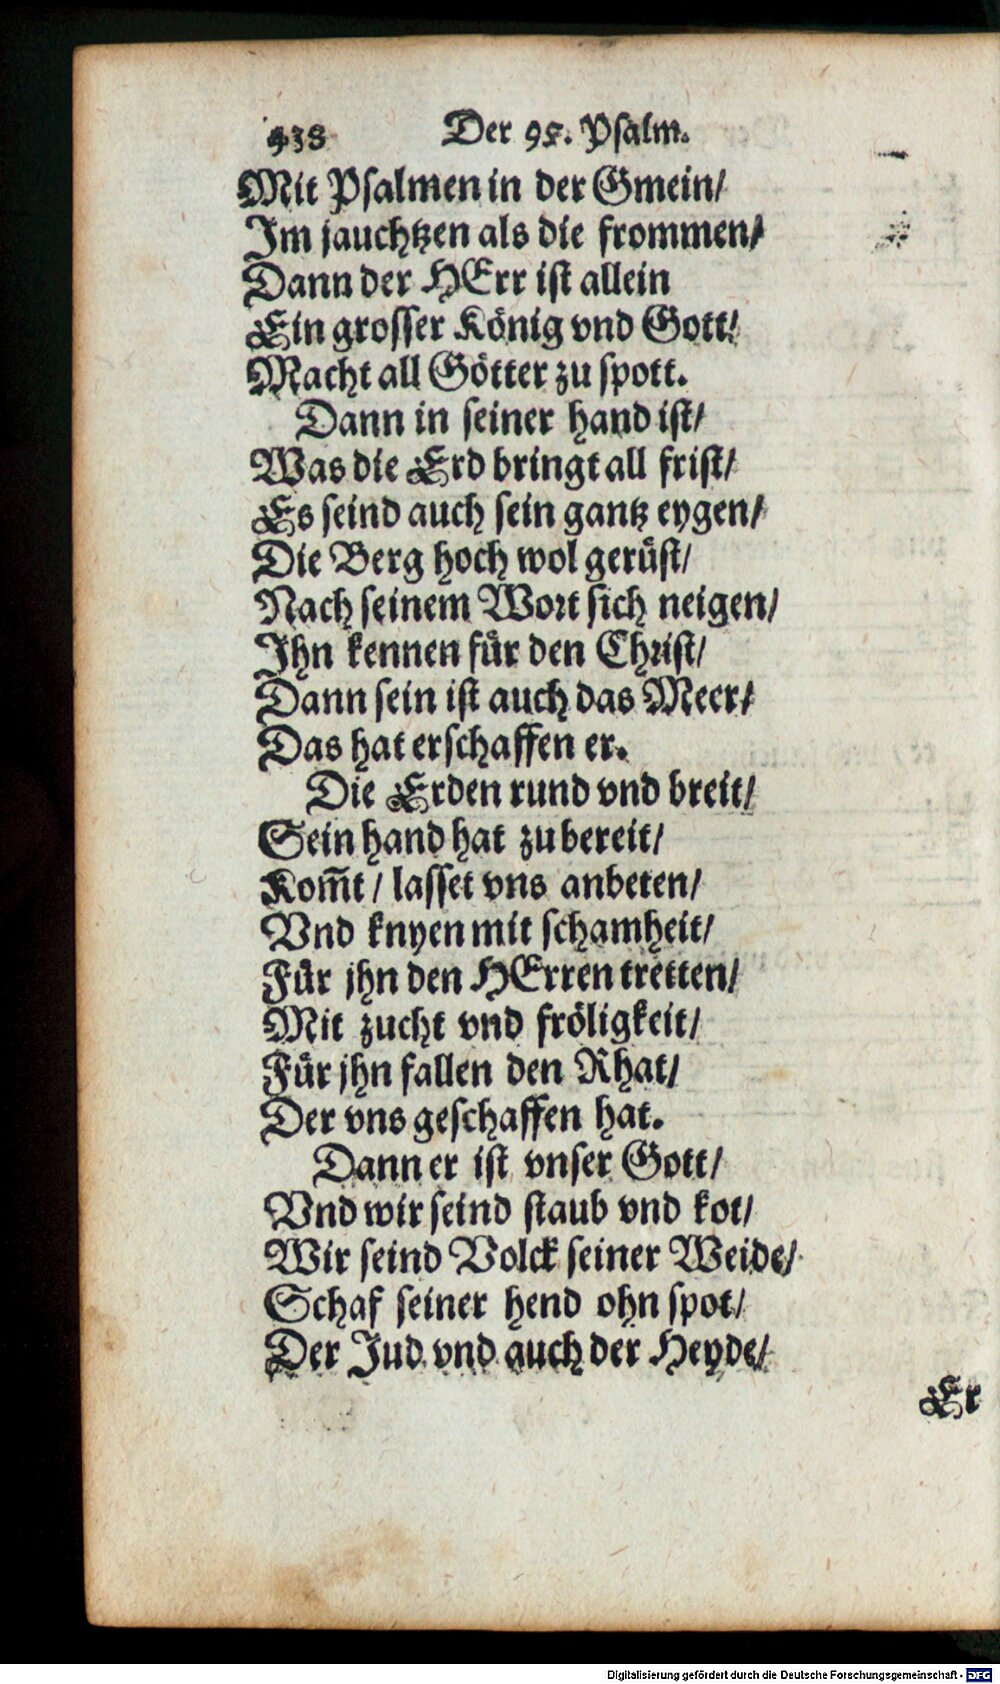 438 Der 95. Psalm.
Mit Psalmen in der Gmein/
Im jauchtzen als die frommen/
Dann der HErr ist allein
Ein grosser König vnd Gott/
Macht all Götter zu spott.
Dann in seiner hand ist/
Was die Erd bringt all frist/
Es seind auch sein gantz eygen/
Die Berg hoch wol gerüst/
Nach seinem Wort sich neigen/
Ihn kennen für den Christ/
Dann sein ist auch das Meer/
Das hat erschaffen er.
Die Erden rund vnd breit/
Sein hand hat zubereit/
Kom̃t / lasset vns anbeten/
Vnd knyen mit schamheit/
Für jhn den HErren tretten/
Mit zucht vnd fröligkeit/
Für jhn fallen den Rhat/
Der vns geschaffen hat.
Dann er ist vnser Gott/
Vnd wir seind staub vnd kot/
Wir seind Volck seiner Weide/
Schaf seiner hend ohn spot/
Der Jud vnd auch der Heyde/
Er
Digitalisierung gefördert durch die Deutsche Forschungsgemeinschaft - DFG